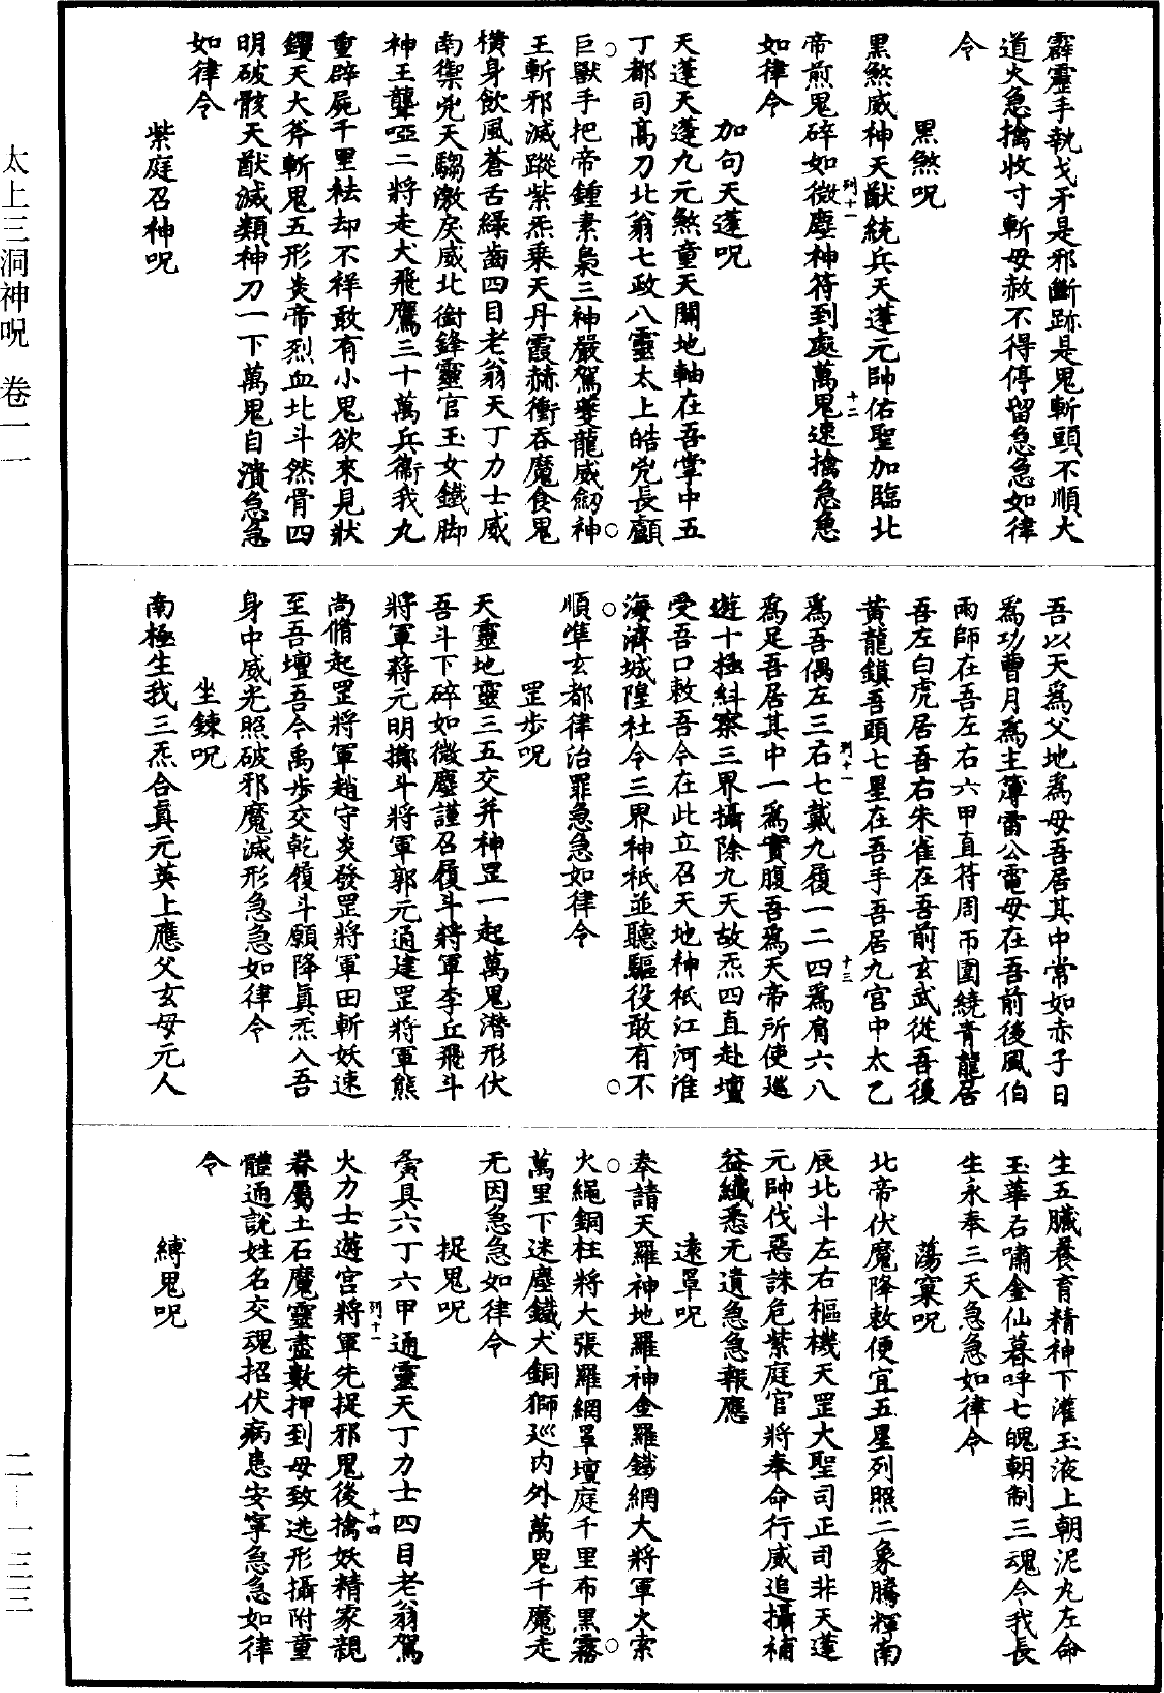 霹靂手執戈矛是邪斷跡是鬼斬頭不順大
道火急擒收寸斬毋赦不得停留急急如律
令
黑煞呪
黑煞威神天猷統兵天蓬元帥佑聖加臨北
帝煎鬼碎如微塵神符到處萬鬼速擒急急
列十一
十二
如律令
加句天蓬呪
天蓬天蓬九元煞童天關地軸在吾掌中五
丁都司高刀北翁七政八靈太上皓兇長顱
巨獸手把帝鍾素梟三神嚴駕夔龍威劒神
王斬邪滅蹤紫炁乘天丹霞赫衝吞魔食鬼
橫身飲風蒼舌綠齒四目老翁天丁力士威
南禦兇天騶激戾威北銜鋒靈官玉女鐵脚
神王聾啞二將走犬飛鷹三十萬兵衞我九
重辟屍千里袪却不祥敢有小鬼欲來見狀
钁天大斧斬鬼五形炎帝烈血北斗然骨四
明破骸天猷滅類神刀一下萬鬼自潰急急
如律令
紫庭召神呪
吾以天爲父地爲母吾居其中常如赤子日
爲功曹月爲主簿雷公電母在吾前後風伯
雨師在吾左右六甲直符周帀圍繞青龍居
吾左白虎居吾右朱雀在吾前玄武從吾後
黃龍鎮吾頭七星在吾手吾居九宮中太乙
爲吾偶左三右七戴九履一二四爲肩六八
列十一
十三
爲足吾居其中一爲實腹吾爲天帝所使廵
遊十極糾察三界攝除九天故炁四直赴壇
受吾口敕吾令在此立召天地神祇江河淮
海濟城隍社令三界神祇並聽驅役敢有不
順準玄都律治罪急急如律令
罡步呪
天靈地靈三五交并神罡一起萬鬼潛形伏
吾斗下碎如微塵謹召履斗將軍李丘飛斗
將軍蔣元明擲斗將軍郭元通建罡將軍熊
尚脩起罡將軍趙守炎發罡將軍田斬妖速
至吾壇吾今禹步交乾履斗願降眞炁入吾
身中威光照破邪魔滅形急急如律令
坐鍊呪
南極生我三炁合眞元英上應父玄母元人
生五臟養育精神下灌玉液上朝泥丸左命
玉華右嘯金仙暮呼七魄朝制三魂令我長
生永奉三天急急如律令
蕩窠呪
北帝伏魔降敕便宜五星列照二象騰輝南
辰北斗左右樞機天罡大聖司正司非天蓬
元帥伐惡誅危紫庭官將奉命行威追攝補
益纖悉无遺急急報應
遠罩呪
奉請天羅神地羅神金羅鐵網大將軍火索
火繩銅柱將大張羅網罩壇庭千里布黑霧
萬里下迷塵鐵犬銅獅巡内外萬鬼千魔走
无因急急如律令
捉鬼呪
矦具六丁六甲通靈天丁力士四目老翁駕
火力士遊宮將軍先捉邪鬼後擒妖精家親
列十一
十四
眷屬土石魔靈盡數押到毋致迯形攝附童
體通說姓名交魂招伏病患安寧急急如律
令
縛鬼呪
太上三洞神呪　卷一一
二—一三三